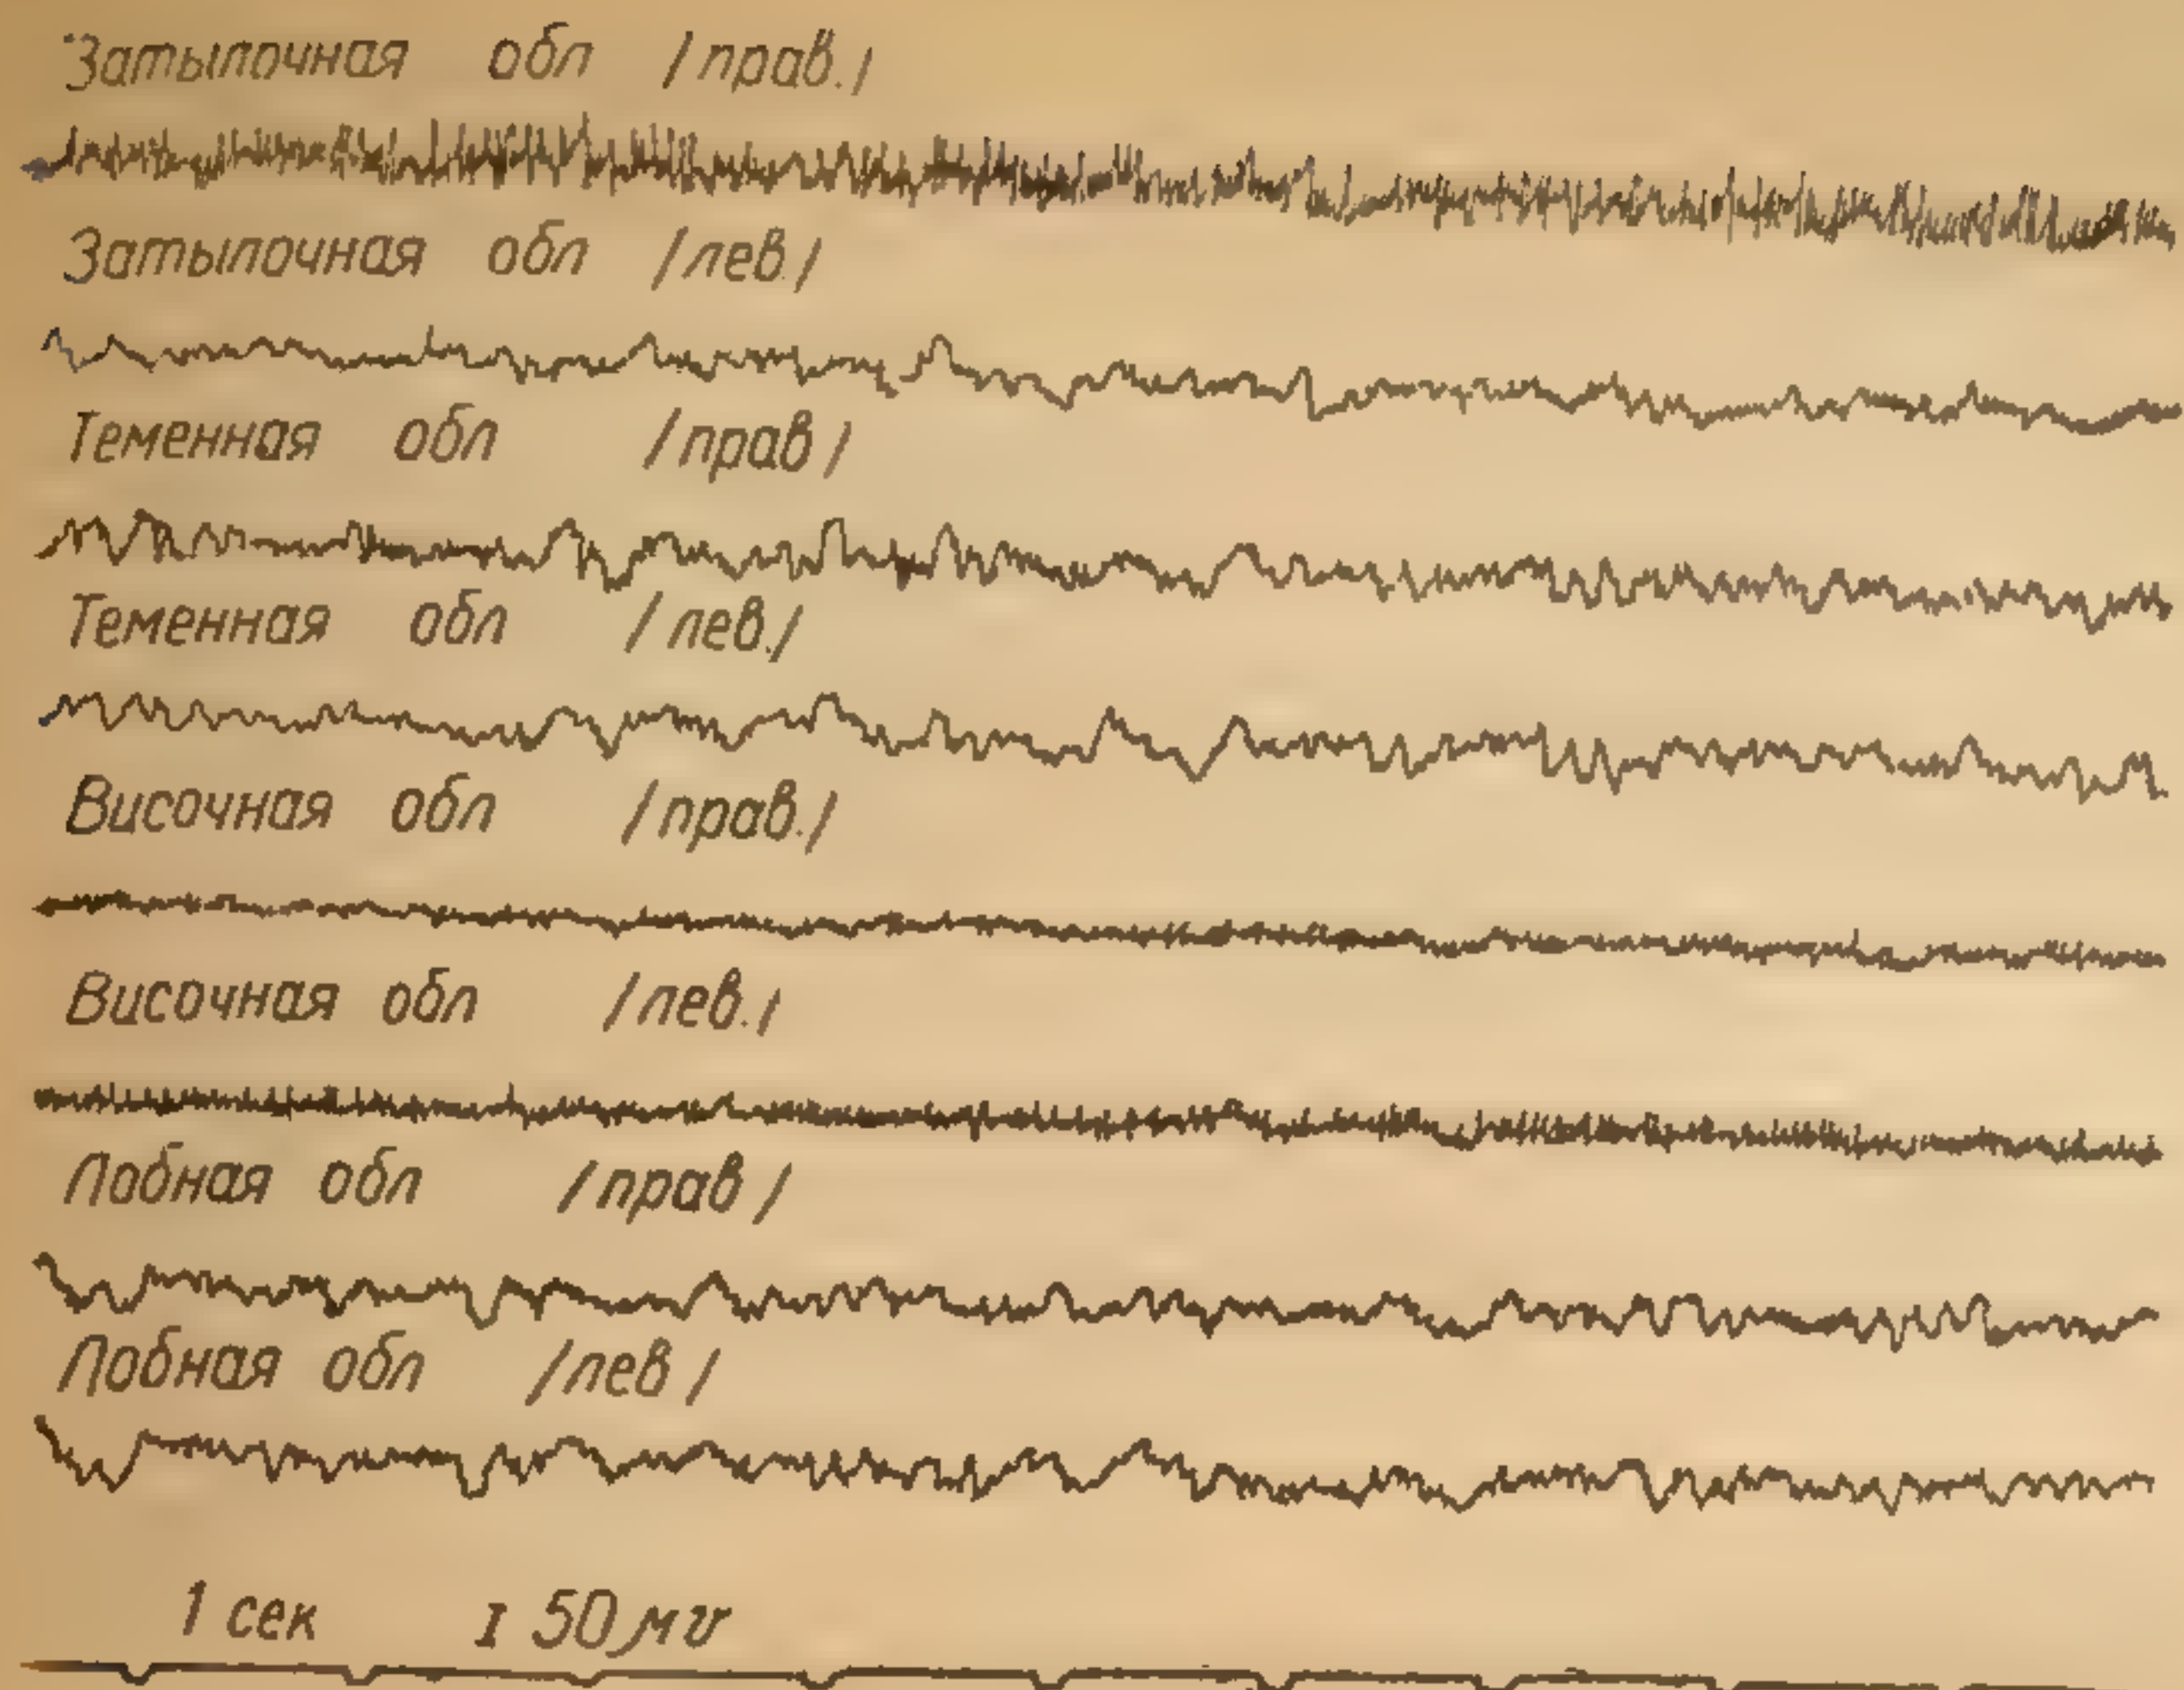 Затылочная обл /прав./
Затылочная обл /лев./
Теменная обл /прав/
Теменная обл /лев./
Височная обл /прав./
Височная обл /лев./
Лобная обл /прав/
Лобная обл /лев/
1 сек I 50 мv